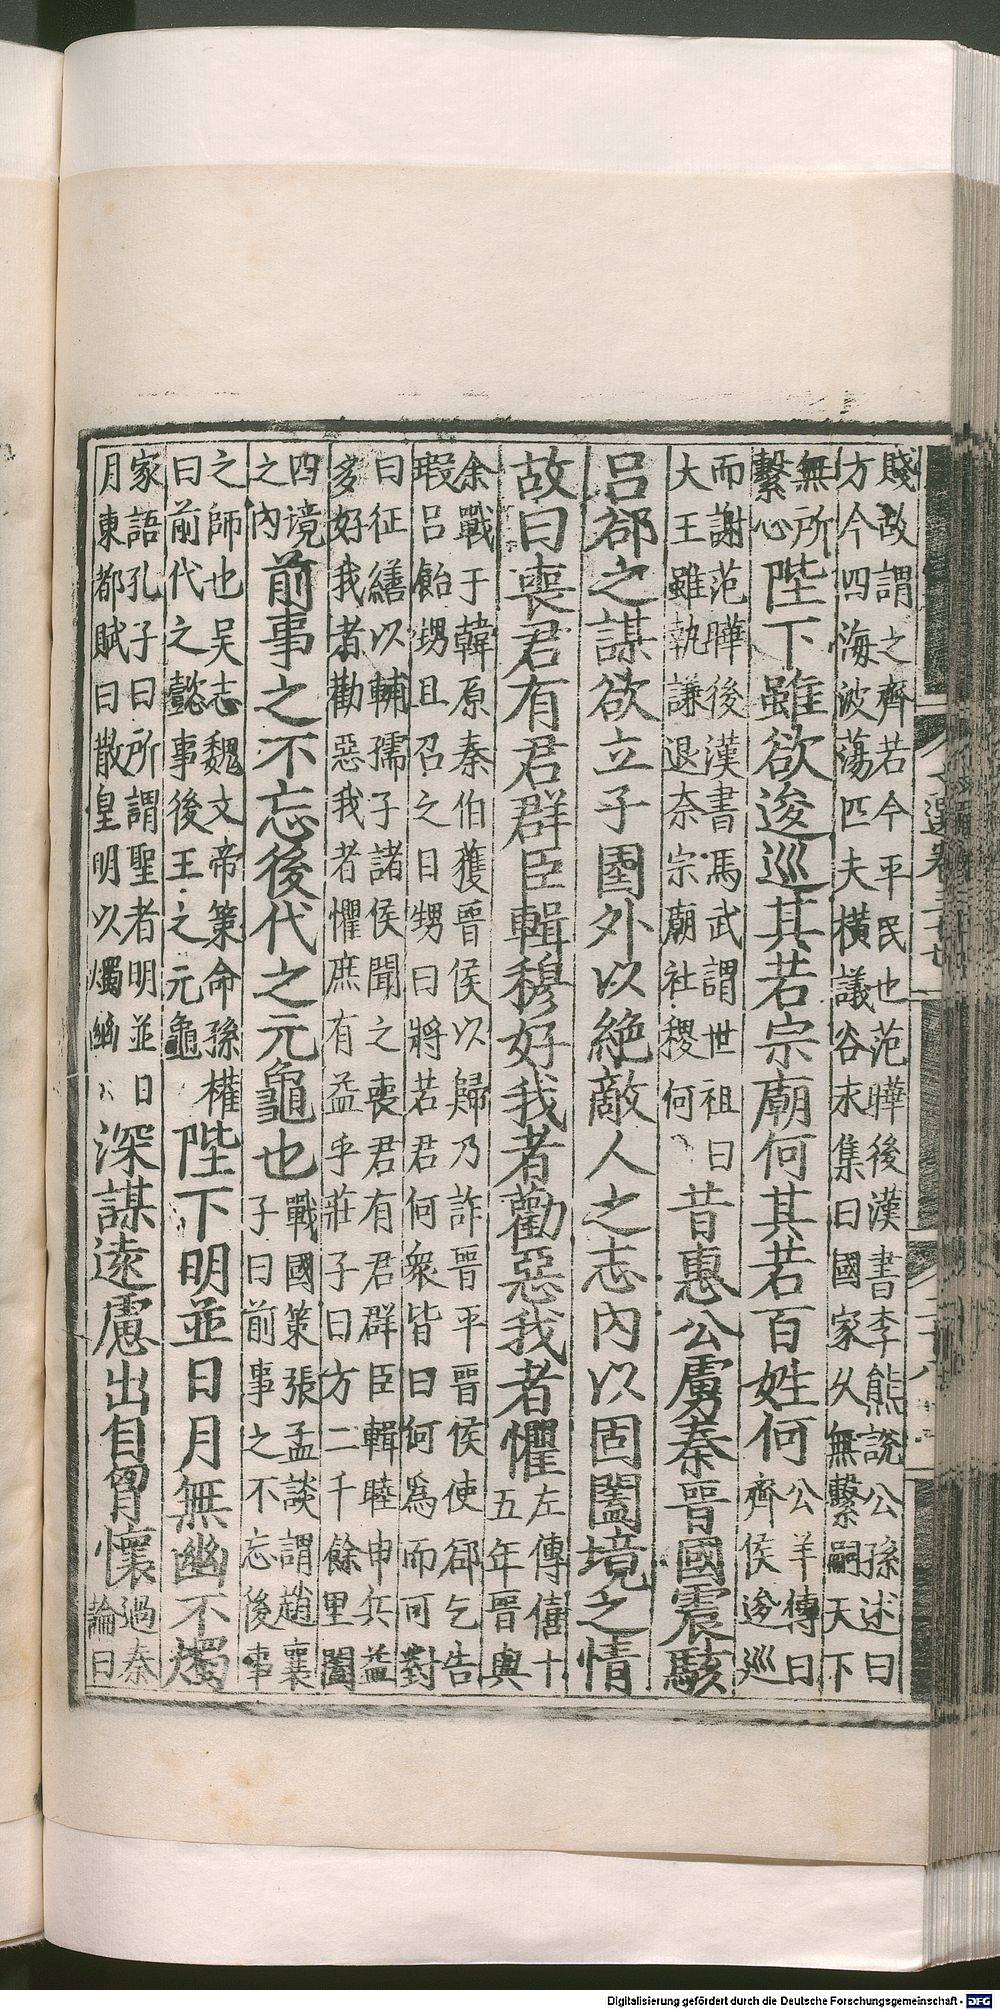 文選卷三十七
二十八
賤故謂之齊若今平民也范曄後漢書李熊說公孫述曰
方今四海波蕩匹夫橫議谷永集曰國家久無繫嗣天下
無所
繫心
陛下雖欲逡巡其若宗廟何其若百姓何
公羊傳曰
齊侯逡巡
而謝范曄後漢書馬武謂世祖曰
大王雖執謙退奈宗廟社稷何
昔惠公虜秦晉國震駭
呂郤之謀欲立子圉外以絕敵人之志內以固闔境之情
故曰喪君有君群臣輯穆好我者勸惡我者懼
左傳僖十
五年晉與
余戰于韓原秦伯獲晉侯以歸乃詐晉平晉侯使郤乞告
瑕呂飴甥且召之曰甥曰將若君何衆皆曰何爲而可對
曰征繕以輔孺子諸侯聞之喪君有君群臣輯睦申兵益
多好我者勸惡我者懼庶有益乎莊子曰方二千餘里闔
四境
之內
前事之不忘後代之元龜也
戰國策張孟談謂趙襄
子曰前事之不忘後事
之師也吳志魏文帝策命孫權
曰前代之懿事後王之元龜
陛下明並日月無幽不燭
家語孔子曰所謂聖者明並日
月東都賦曰散皇明以燭幽
深謀遠慮出自胷懷
過秦
論曰
Digitalisierung gefördert durch die Deutsche Forschungsgemeinschaft - DFG